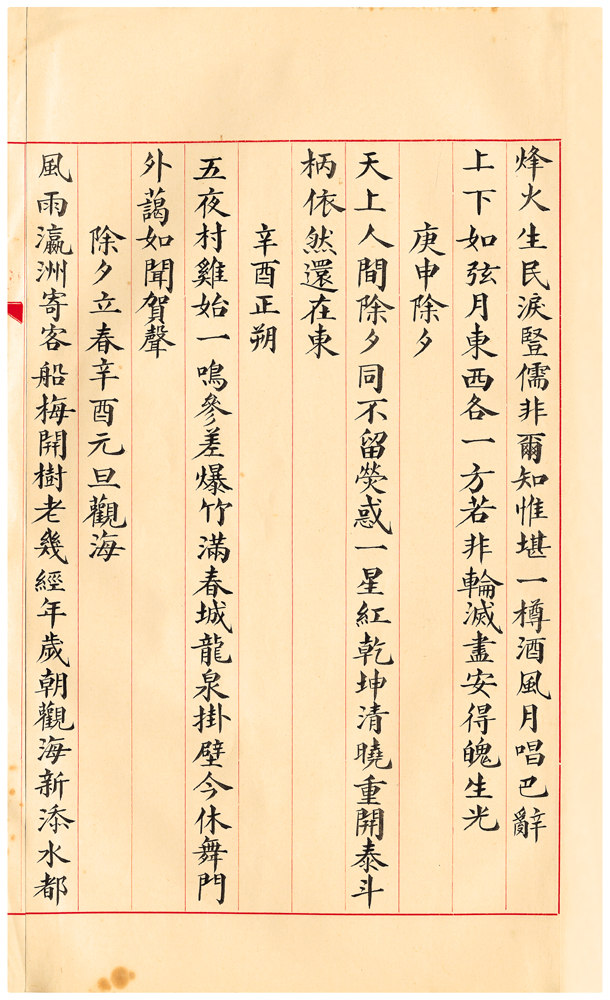 烽火生民淚豎儒非爾知惟堪一樽酒風月唱巴辭
上下如弦月東西各一方若非輪滅盡安得魄生光
庚申除夕
天上人間除夕同不留熒惑一星紅乾坤清曉重開泰斗
柄依然還在東
辛酉正朔
五夜村雞始一鳴參差爆竹滿春城龍泉掛壁今休舞門
外藹如聞賀聲
除夕立春辛酉元旦觀海
風雨瀛洲寄客船梅開樹老幾經年歲朝觀海新添水都